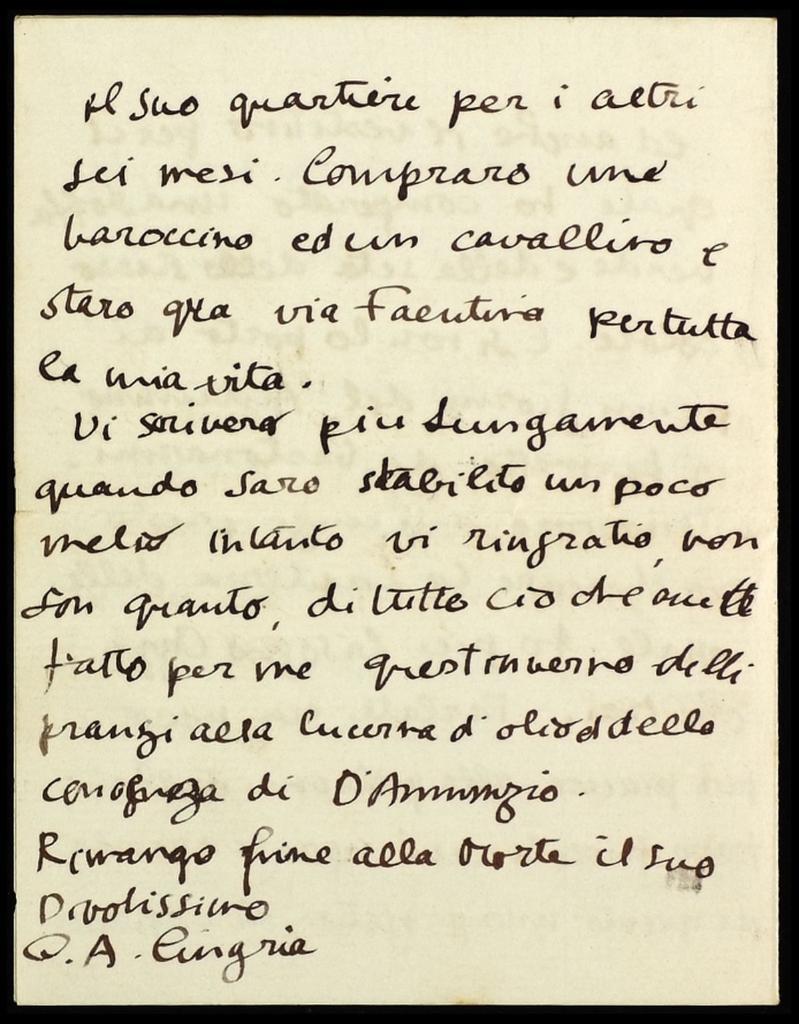 il suo quartiere per i altri
sei mesi. Compraro une
baroccino ed un cavallino e
staro qua via Faentina per tutta
la mia vita.
Vi scrivero piu lungamente
quando saro stabilito un poco
melio intanto vi ringratio, non
son quanto, di tutto cio che avete
fatto per me quest inverno delli
pranzi alla lucerna d'olio d dello
di D'Annunzio.
Rimango fine alla Morte il suo
Divotissimo
C. A. Cingria